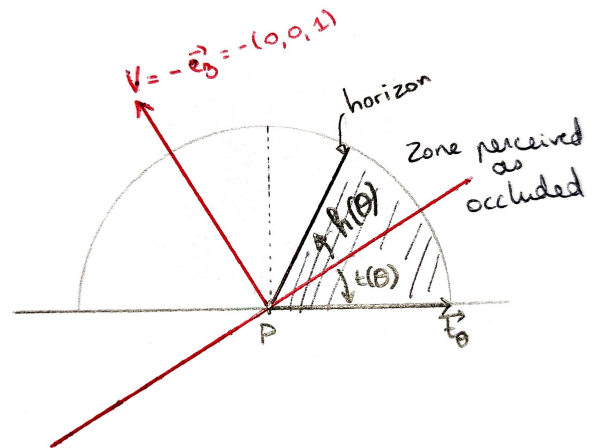 V = - e⃗₃ = -(0,0,1)
horizon
Zone perceived
as
occluded
h(θ)
t(θ)
P
t⃗θ